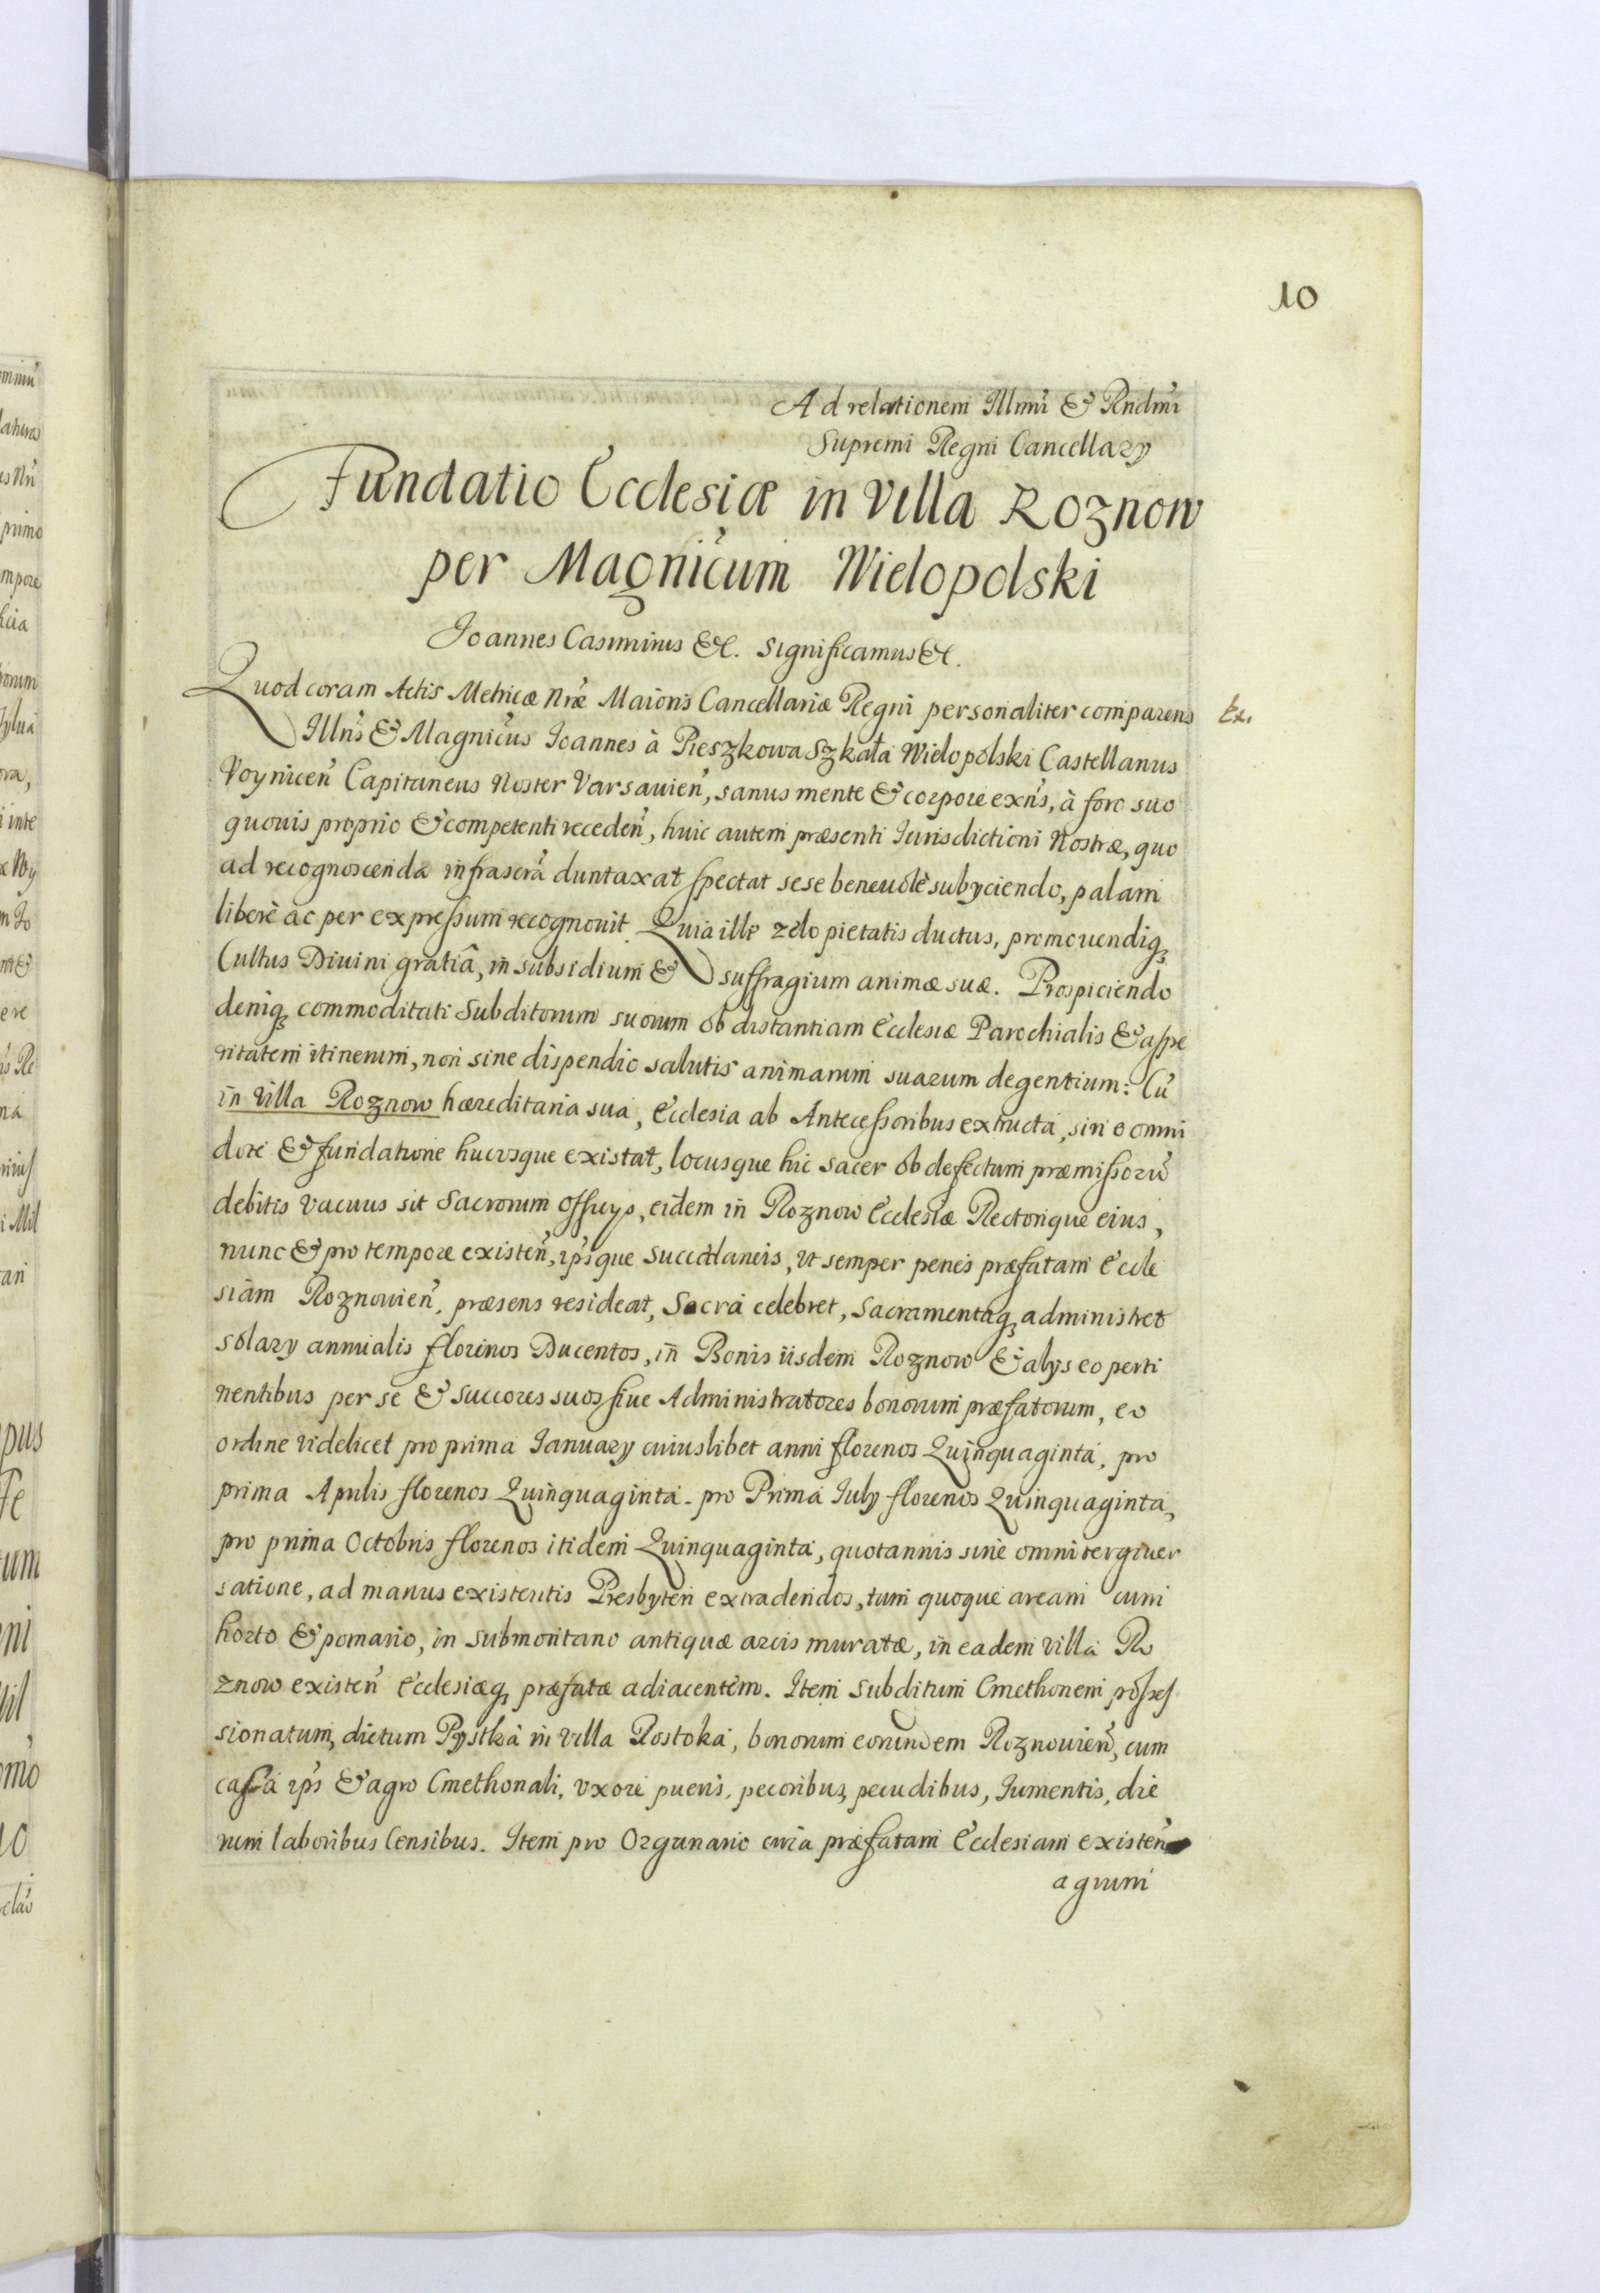 10
Ad relationem Illmi & Rndmi
Supremi Regni Cancellary
Fundatio Ecclesiæ in Villa Roznow
per Magnicum Wielopolski
Joannes Casimirus &c. Significamus &c.
Quod coram Actis Metricæ Nræ Maioris Cancellariæ Regni personaliter comparens Ex.
Illris & Magnicus Joannes à Pieszkowa Szkała Wielopolski Castellanus
Voynicen Capitaneus Noster Varsauien, sanus mente & corpore exns, à foro suo
quouis proprio & competenti receden, huic autem præsenti Jurisdictioni Nostræ, quo
ad recognoscenda infrascra duntaxat spectat sese beneuolè subyciendo, palam
liberè ac per expressum recognouit. Quia ille zelo pietatis ductus, promouendiq
Cultus Diuini gratiâ, in subsidium & suffragium animæ suæ. Prospiciendo
deniq commoditati Subditorum suorum ob distantiam Ecclesiæ Parochialis & aspe
ritatem itinerum, non sine dispendio salutis animarum suarum degentium: Cu
in Villa Roznow hæreditaria sua, Ecclesia ab Antecessoribus extructa, sine omni
dote & fundatione hucusque existat, locusque hic sacer ob defectum præmissoru
debitis vacuus sit Sacrorum officys, eidem in Roznow Ecclesiæ Rectorique eius,
nunc & pro tempore existen, ipsque succedaneis, vt semper penes præfatam Eccle
siam Roznouien, præsens resideat, Sacra celebret, Sacramentaq administret
solary annualis florenos Ducentos, in Bonis iisdem Roznow & alys eo perti
nentibus per se & succores suos siue Administratores bonorum præfatorum, eo
ordine videlicet pro prima January cuiuslibet anni florenos Quinquaginta, pro
prima Aprilis florenos Quinquaginta. pro Prima July florenos Quinquaginta,
pro prima Octobris florenos itidem Quinquaginta, quotannis sine omni tergiuer
satione, ad manus existentis Presbyteri extradendos, tum quoque aream cum
horto & pomario, in submontano antiquæ arcis muratæ, in eadem villa Ro
znow existen Ecclesiæq præfatæ adiacentem. Item subditum Cmethonem posses
sionatum, dictum Pystka in villa Rostoka, bonorum eorundem Roznouien, cum
casa ips & agro Cmethonali, vxore pueris, pecoribus, pecudibus, Jumentis, die
rum laboribus Censibus. Item pro Organario circa præfatam Ecclesiam existen
agrum